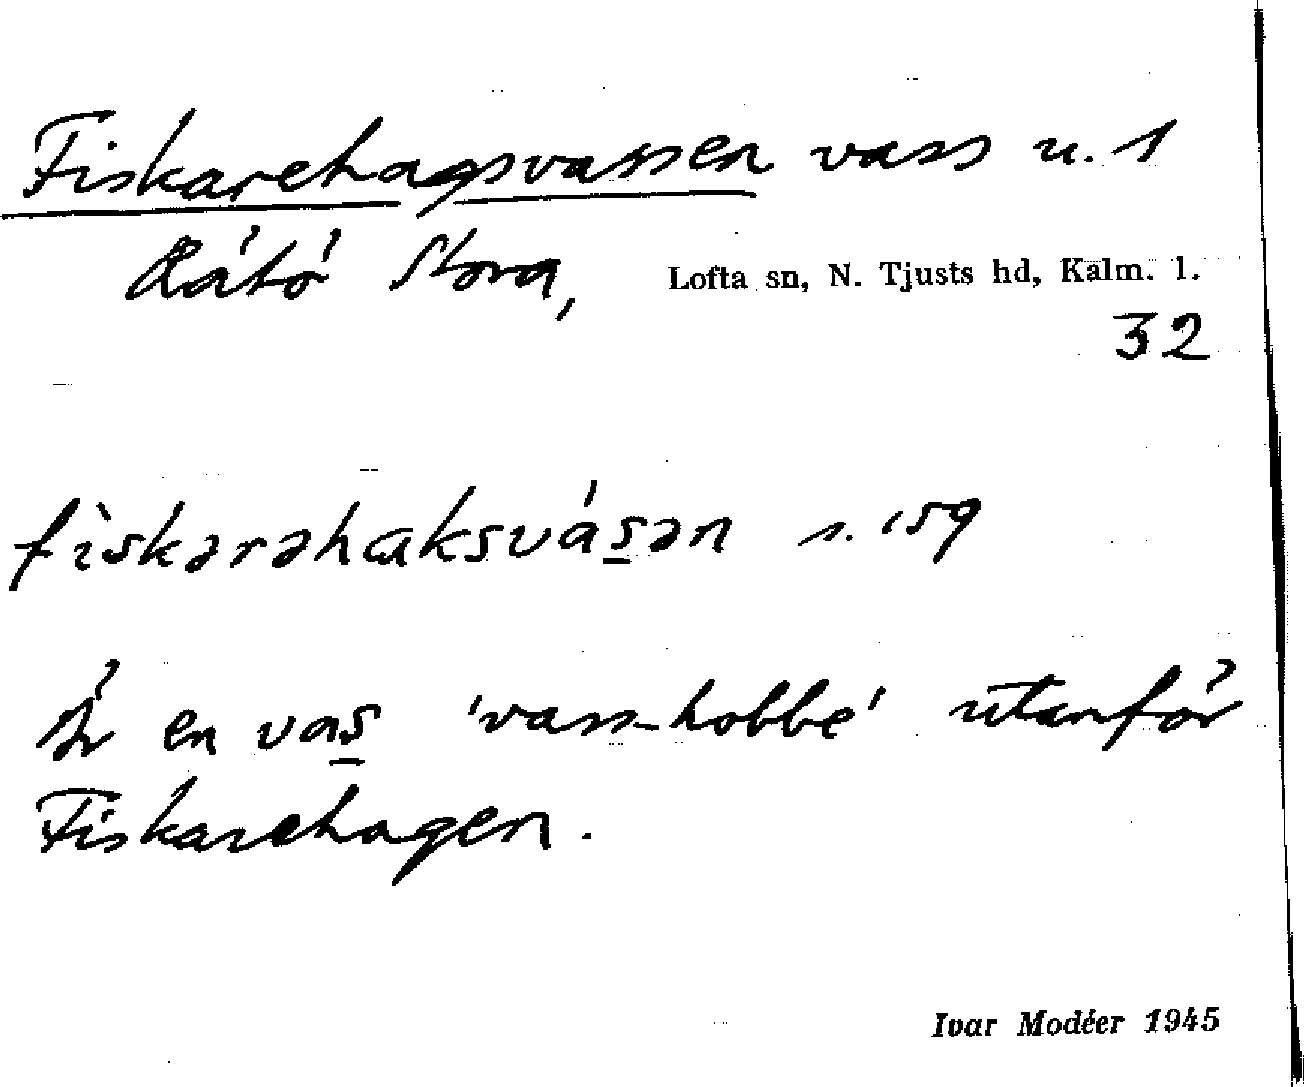 Fiskarehagsvassen vass u. 1
Rätö Stora, Lofta sn, N. Tjusts hd, Kalm. l.
32
fìskarəhaksvásən s. 159
Är en vas 'vass-hobbe' utanför
Fiskarehagen.
Ivar Modéer 1945